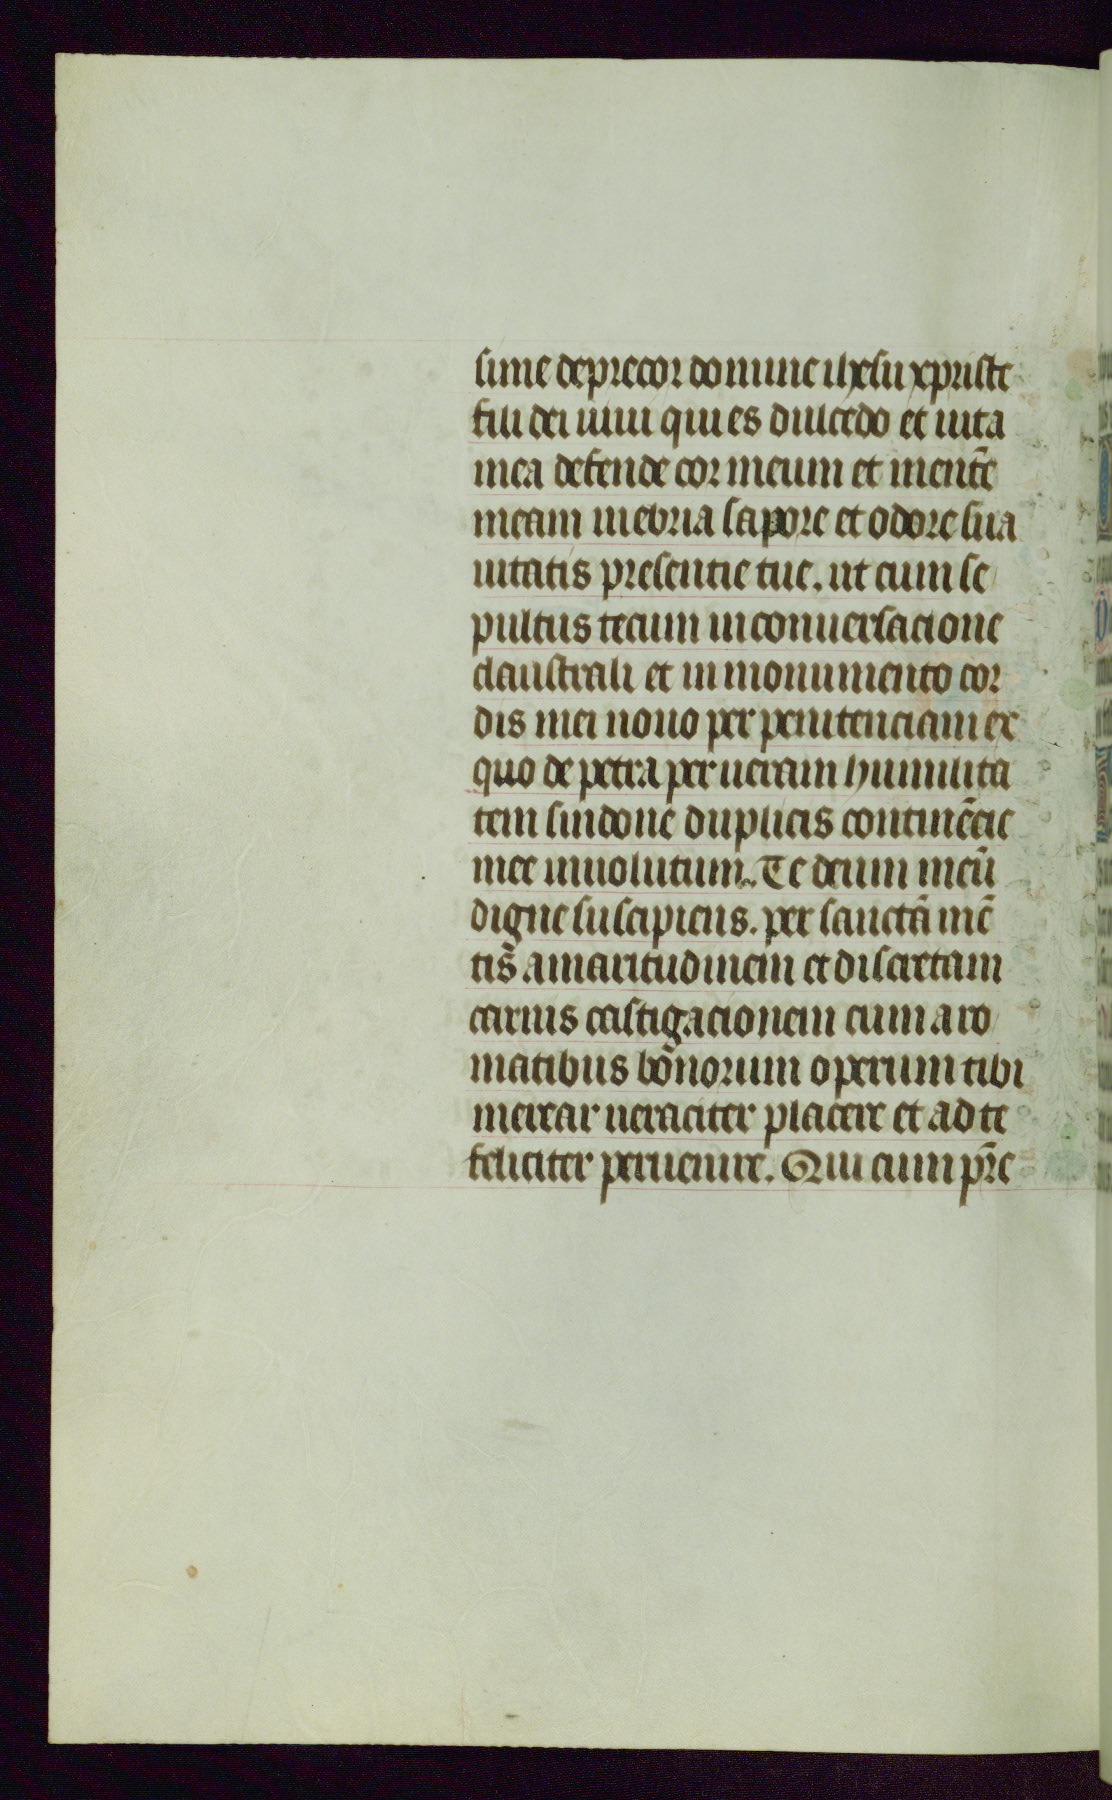 sime deprecor domine ihesu xpriste
fili dei uiui qui es dulcedo et uita
mea defende cor meum et mentē
meam inebria sapore et odore sua
uitatis presentie tue. ut cum se
pultus tecum in conuersacione
claustrali et in monumento cor
dis mei nouo per penitenciam ex
quo de petra per ueram humilita
tem sindone duplicis continēcie
mee inuolutum. Te deum meū
digne suscipiens. per sanctā mē
tis amaritudinem et discretam
carnis castigacionem cum aro
matibus bonorum operum tibi
merear ueraciter placere et ad te
feliciter peruenire. Qui cum pr̄e